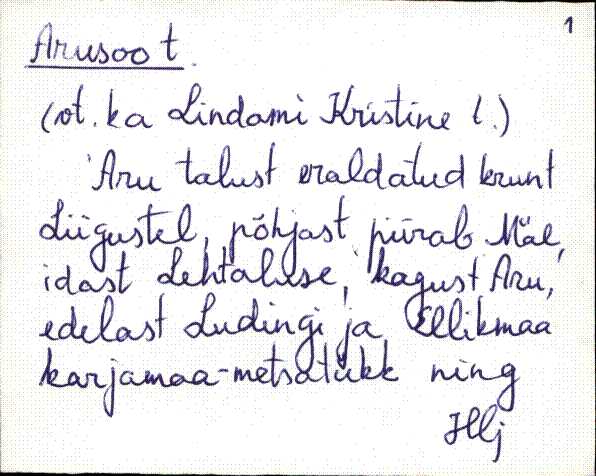 1
Arusoo t.
(vt. ka Lindami Kristine t.)
Aru talust eraldatud krunt
Liigustel, põhjast piirab Mäe,
idast Lehtaluse, kagust Aru,
edelast Ludingi ja Ellikmaa
karjamaa-metsatükk ning
Hlj